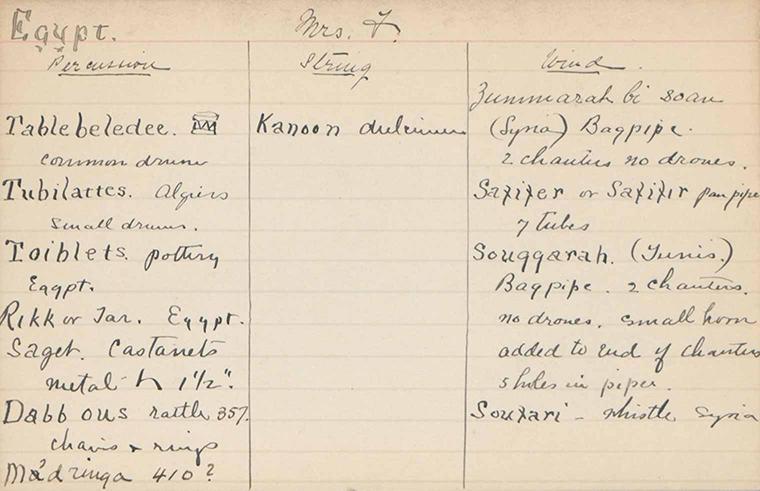 Egypt. Mrs. F.
Percussion
Table beledee.
common drum
Tubilattes. Algiers
small drums.
Toiblets. pottery
Egypt.
Rikk or Tar. Egypt.
Saget. Castanets
metal 1 1/2".
Dabbous rattle 357.
chains & rings
Madringa 410?
String
Kanoon dulcimer
Wind.
Zummarah bi soan
(Syria) Bagpipe.
2 chanters no drones.
or pan pipe
7 tubes
Souqqarah. (Tunis.)
Bagpipe. 2 chanters.
no drones. small horn
added to end of chanters
5 holes in pipes.
whistle Syria